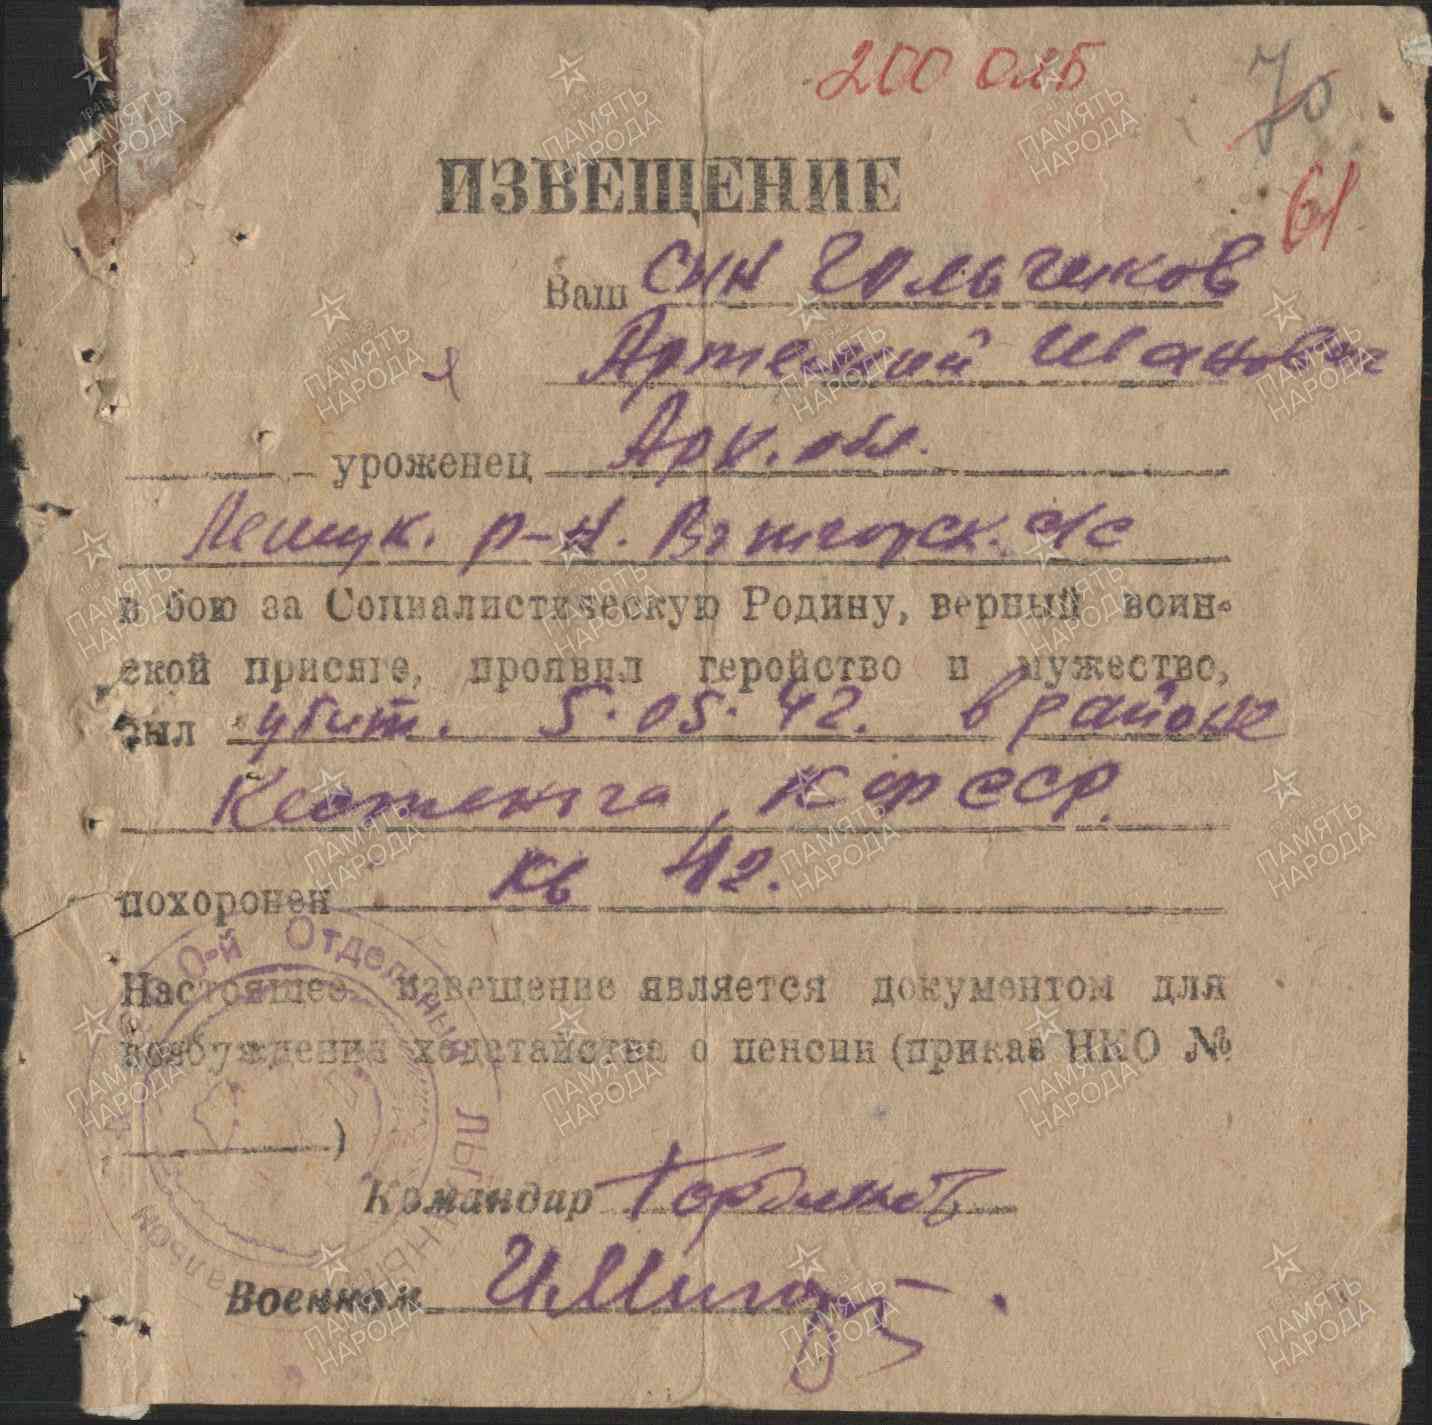 200 ОЛБ
70
61
ИЗВЕЩЕНИЕ
Ваш сын Гольчиков
Артемий Иванович
уроженец Арх. обл.
Лешук. р-н. Вожгорск. с/с
в бою за Социалистическую Родину, верный воин-
ской присяге, проявил геройство и мужество,
был убит. 5.05.42. в районе
Кестеньга, КФССР.
похоронен кв 42.
Настоящее извещение является документом для
возбуждения ходатайства о пенсии (приказ НКО №
)
Командир
Военком
0-й Отдельный
ЛЫЖНЫЙ
ПАМЯТЬ НАРОДА